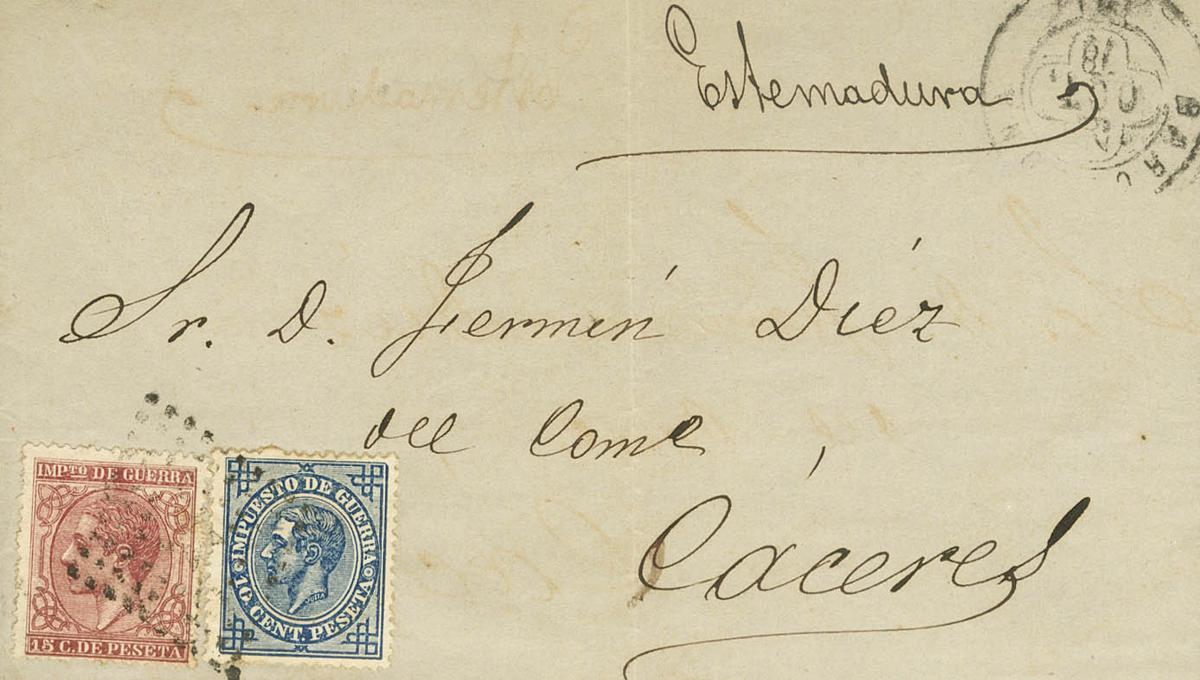 Estemadura
Sr. D. Jermán Diéz
del Come,
Cáceres
IMPTO DE GUERRA
15 C. DE PESETA
IMPUESTO DE GUERRA
10 CENT. PESETA
18
OCT